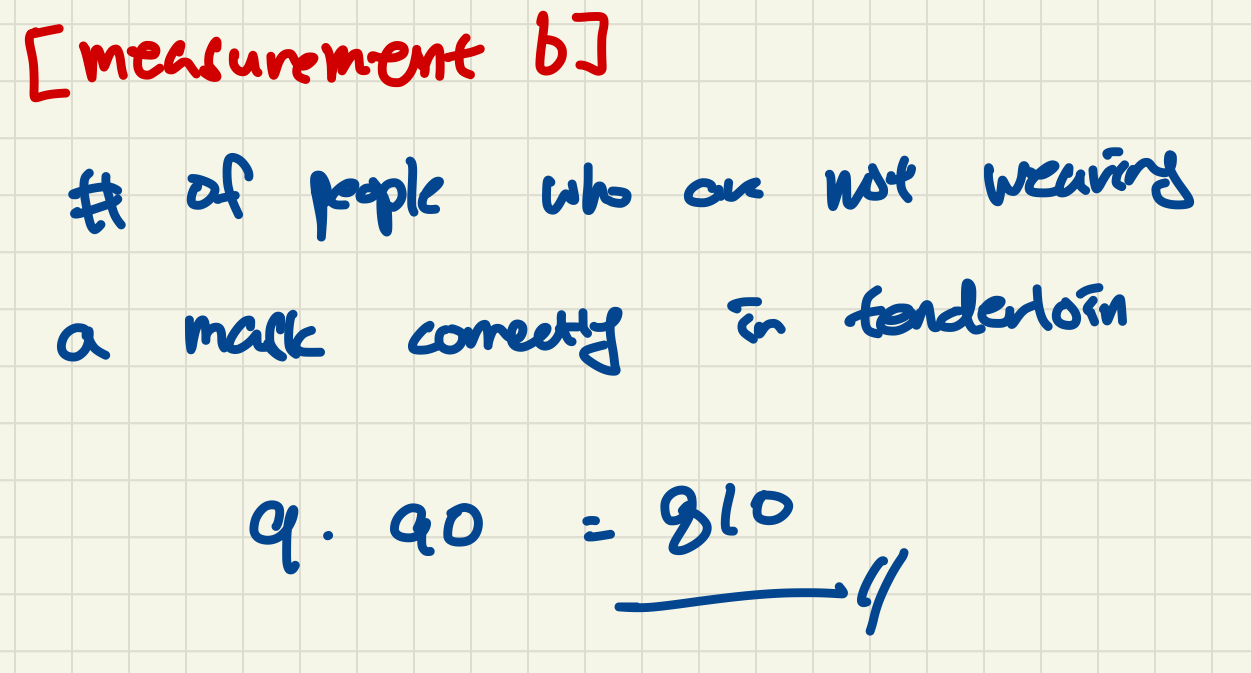 [measurement b]
# of people who are not wearing
a mask correctly in tenderloin
9 · 90 = 810